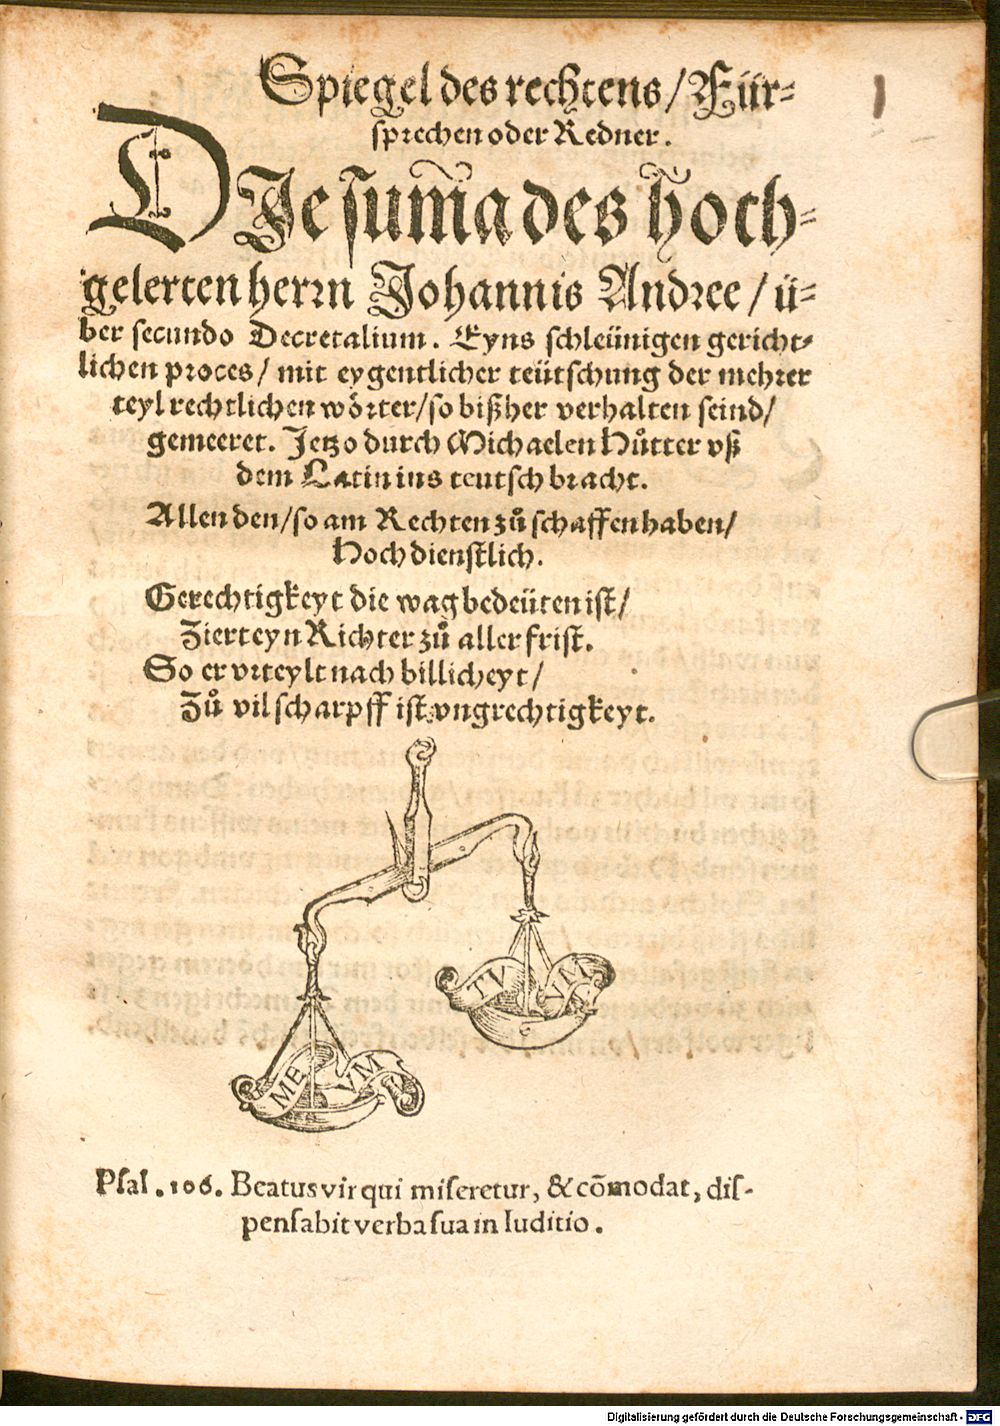 Spiegel des rechtens / Für-
sprechen oder Redner.
DJe sum̄a des hoch-
gelerten herrn Johannis Andree / ü-
ber secundo Decretalium. Eyns schleünigen gericht-
lichen proces / mit eygentlicher teütschung der mehrer
teyl rechtlichen wörter / so bißher verhalten seind /
gemeeret. Jetzo durch Michaelen Hůtter vß
dem Latin ins teutsch bracht.
Allen den / so am Rechten zů schaffen haben /
hoch dienstlich.
Gerechtigkeyt die wag bedeüten ist /
Zierteyn Richter zů aller frist.
So er vrteylt nach billicheyt /
Zů vil scharpff ist vngrechtigkeyt.
TVVM
MEVM
Psal. 106. Beatus vir qui miseretur, & cōmodat, dis-
pensabit verba sua in Iuditio.
1
Digitalisierung gefördert durch die Deutsche Forschungsgemeinschaft - DFG